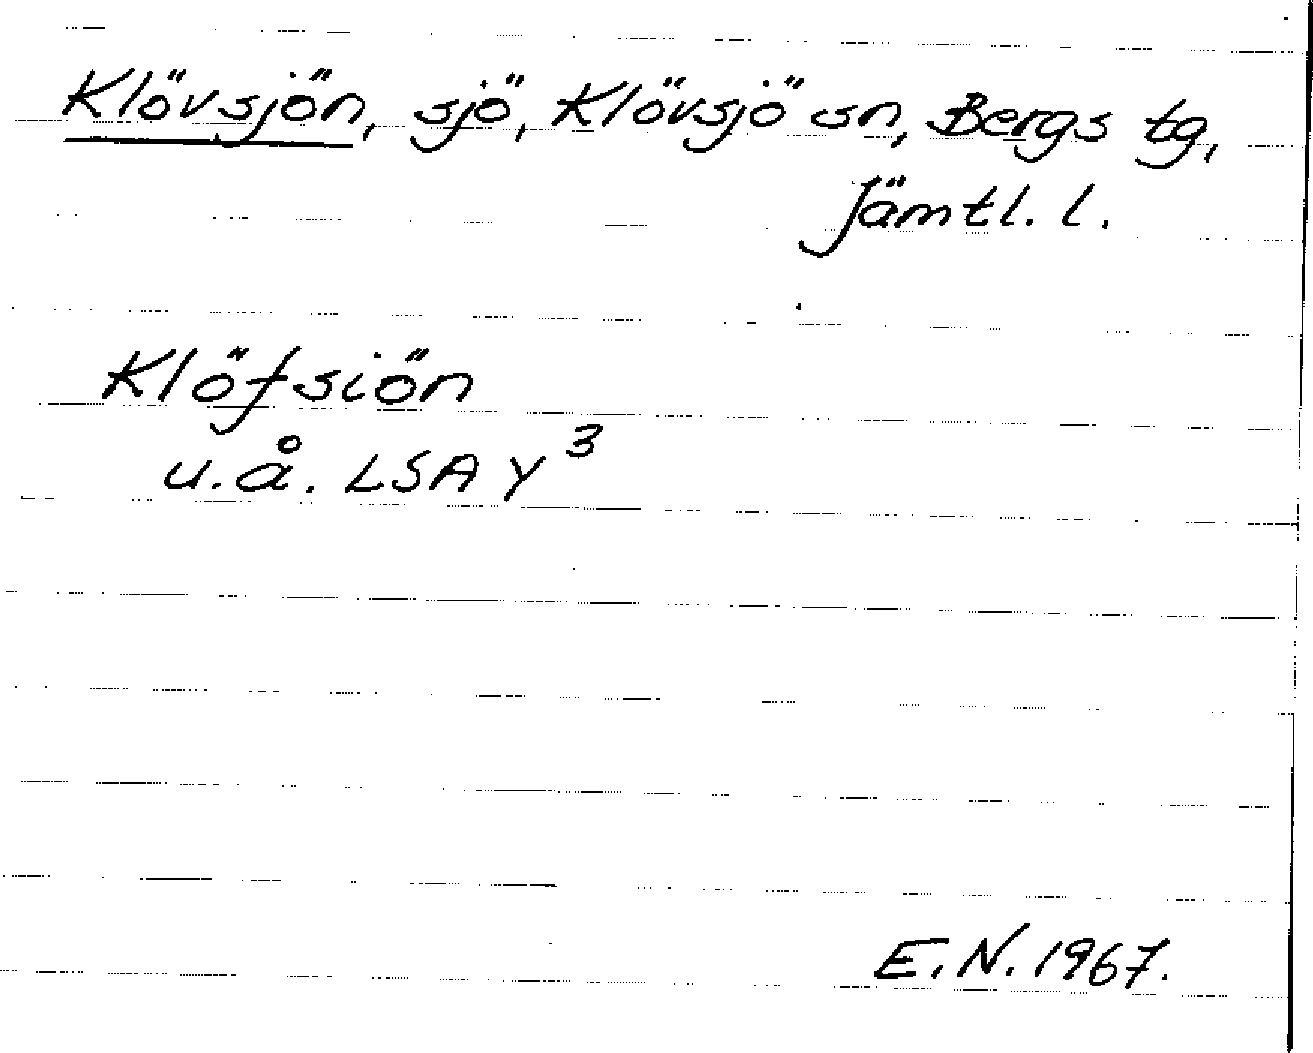 Klövsjön, sjö, Klövsjö sn, Bergs tg,
Jämtl. l.
Klöfsiön
u.å. LSA Y³
E.N. 1967.